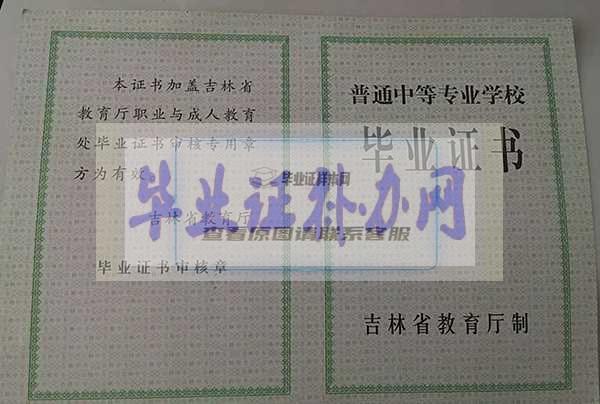 本证书加盖吉林省
教育厅职业与成人教育
处毕业证书审核专用章
方为有效。
吉林省教育厅
毕业证书审核章
普通中等专业学校
毕业证书
吉林省教育厅制
毕业证样本网
毕业证补办网
查看原图请联系客服